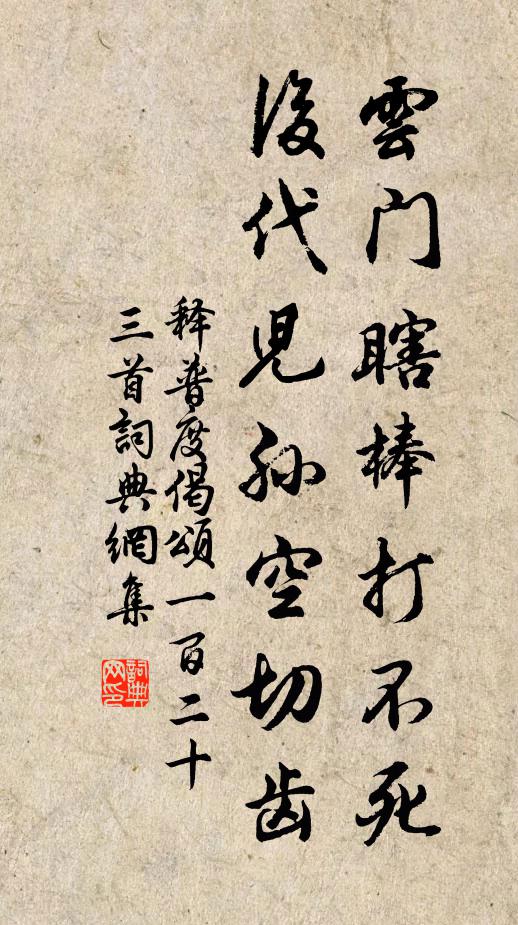 雲门瞎棒打不死
後代児孙空切齿
释普度偈頌一百二十
三首詞典網集
詞典
网印